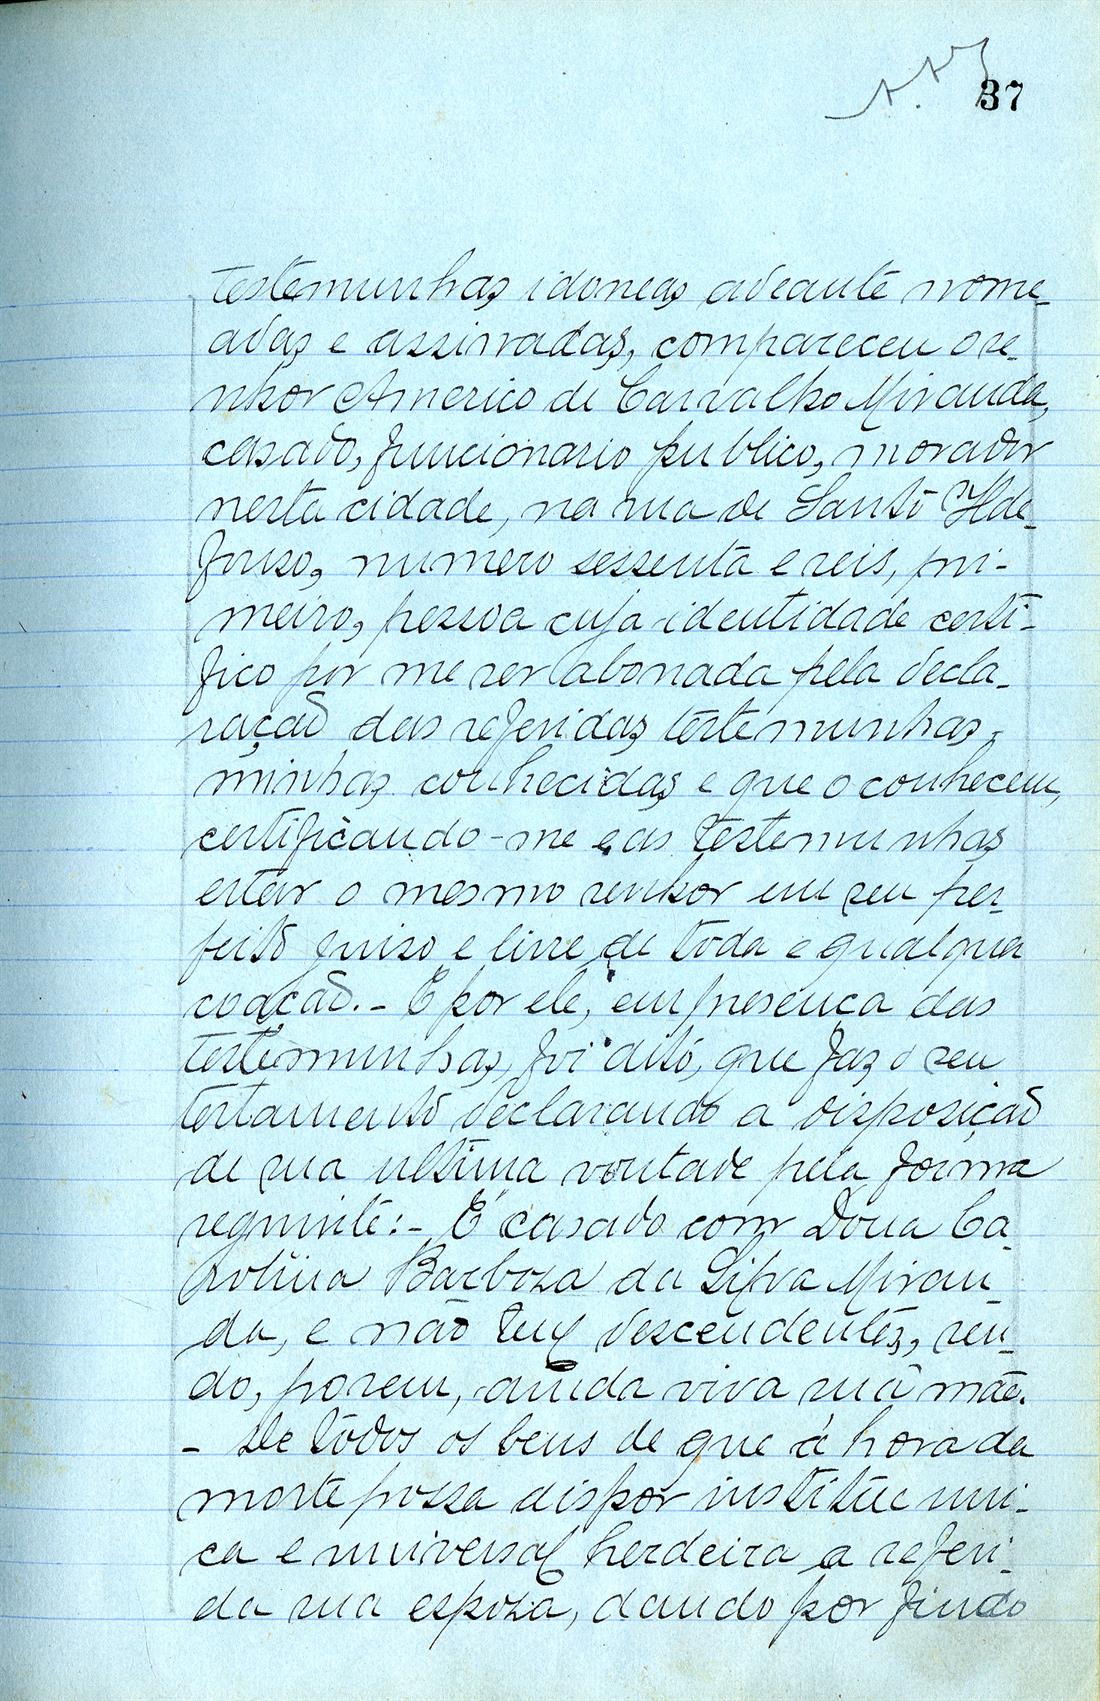 37
testemunhas idoneas adeante nome-
adas e assinadas, compareceu o se-
nhor Americo de Carvalho Miranda,
casado, funcionario publico, morador
nesta cidade, na rua de Santo Ilde-
fonso, numero sessenta e seis, pri-
meiro, pessoa cuja identidade certi-
fico por me ser abonada pela decla-
ração das referidas testemunhas,
minhas conhecidas e que o conhecem,
certificando-me e as testemunhas
estar o mesmo senhor em seu per-
feito juiso e livre de toda e qualquer
coação. - E por ele, em presença das
testemunhas, foi dito, que faz o seu
testamento declarando a disposição
de sua ultima vontade pela forma
seguinte: - É casado com Dona Ca-
rolina Barboza da Silva Miran-
da, e não tem descendentes, sen-
do, porem, ainda viva sua mãe.
- De todos os bens de que á hora da
morte possa dispor institue uni-
ca e universal herdeira a referi-
da sua espoza, dando por findo